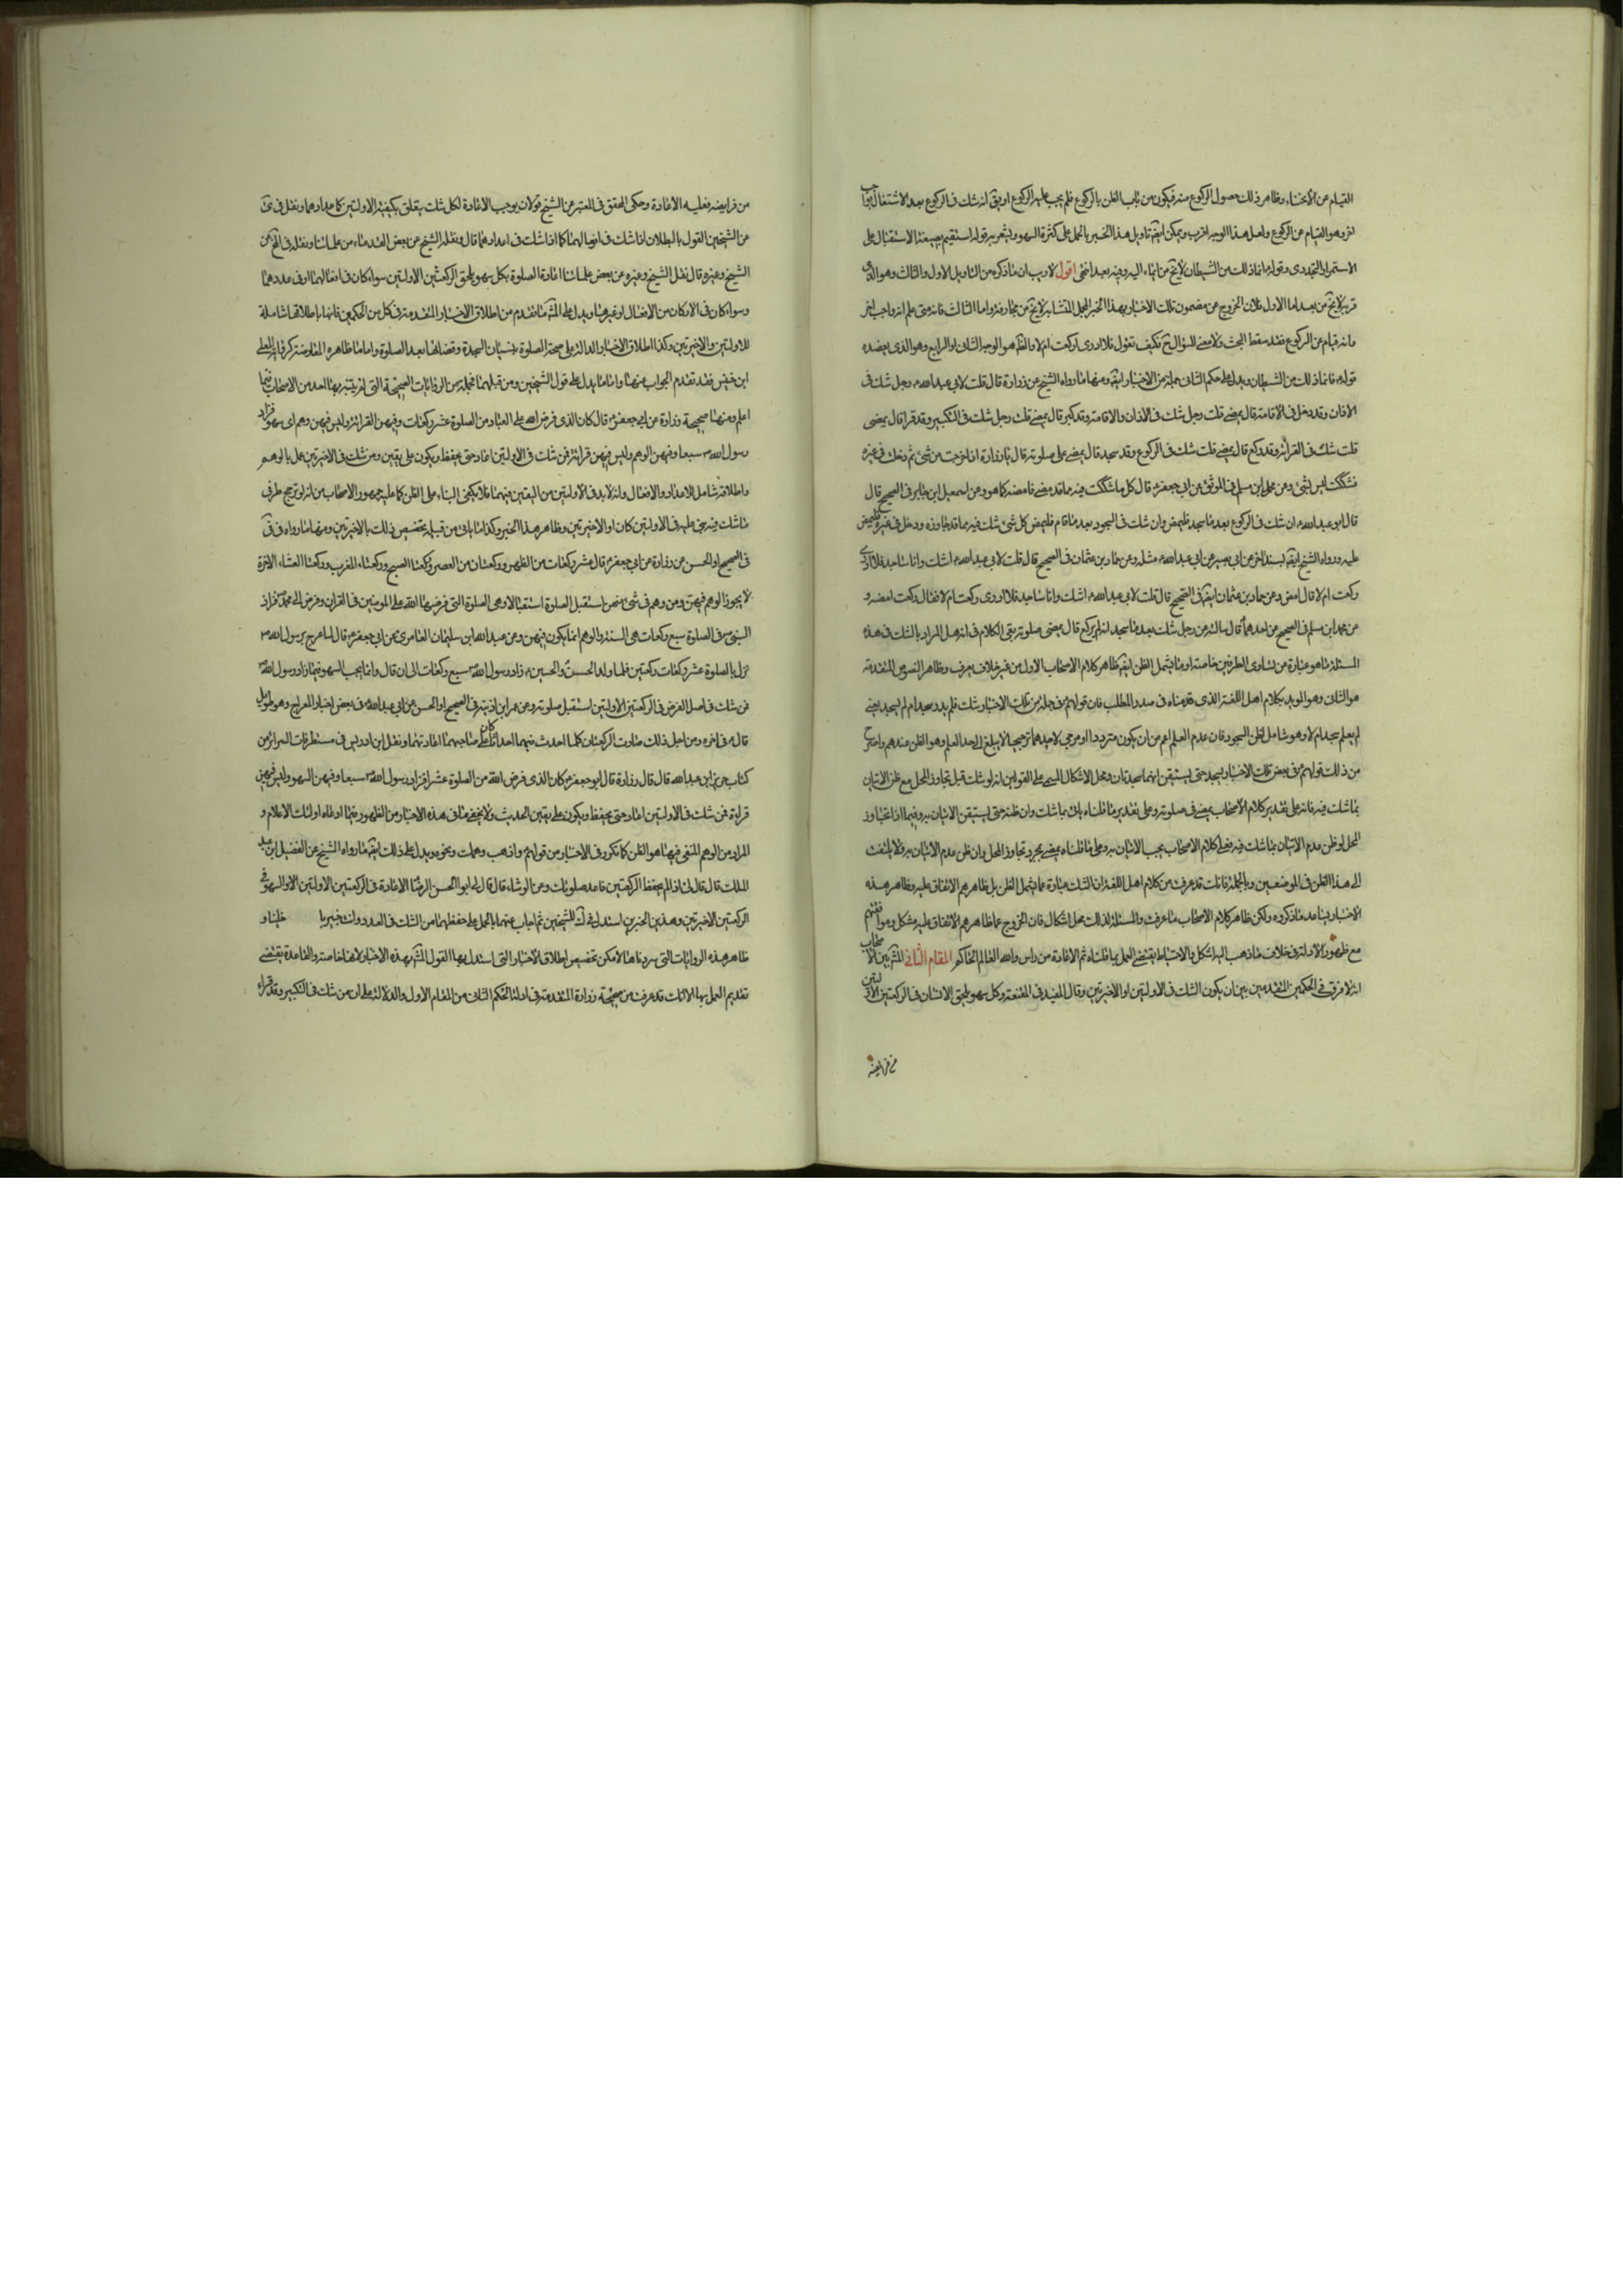 القيام عن الانحناء وظاهر ذلك حصول الركوع منه فيكون من باب الظن بالركوع فلم يجب عليه الركوع او يق انه شك في الركوع بعد الاشتغال بواجب
اخر وهو القيام عن الركوع ولعل هذا الوجه اقرب ويمكن ايضا تاويل هذا الخبر بالحمل على كثرة السهو ويشعر به قوله استقيم بصيغة الاستقبال على
الاستمرار التجددى وقوله انما ذلك من الشيطان لا يخ من ايماء اليه وفيه بعد انتهى اقول لا ريب ان ما ذكره من التاويل الاول والثالث وهو الذى
قربه لا يخ من بعد اما الاول فلان الخروج عن مضمون تلك الاخبار بهذا الخبر المجمل المتشابه لا يخ من مجازفة واما الثالث فانه متى علم انه واجب اخر
وانه قيام عن الركوع فقد سقط البحث ولا معنى للسؤال ح فكيف تقول فلا ادرى اركعت ام لا والظ هو الوجه الثانى او الرابع وهو الذى يعضده
قوله فانما ذلك من الشيطان ويدل على حكم الثانى جملة من الاخبار ايضا ومنها ما رواه الشيخ عن زرارة قال قلت لابي عبد الله ع رجل شك في
الاذان وقد دخل في الاقامة قال يمضى قلت رجل شك في الاذان والاقامة وقد كبر قال يمضى قلت رجل شك في التكبير وقد قرا قال يمضى
قلت شك في القراءة وقد ركع قال يمضى قلت شك في الركوع وقد سجد قال يمضى على صلوته قال يا زرارة اذا خرجت من شئ ثم دخلت في غيره
فشكك ليس بشئ وعن محمد ابن مسلم في الموثق عن ابي جعفر ع قال كل ما شككت فيه مما قد مضى فامضه كما هو وعن اسمعيل ابن جابر في الصحيح قال
قال ابو عبد الله ع ان شك في الركوع بعد ما سجد فليمض وان شك في السجود بعد ما قام فليمض كل شئ شك فيه مما قد جاوزه ودخل في غيره فليمض
عليه ورواه الشيخ ايضا بسند اخر عن ابي بصير عن ابي عبد الله ع مثله وعن حماد بن عثمان في الصحيح قال قلت لابي عبد الله ع اشك وانا ساجد فلا ادرى
ركعت ام لا قال امض وعن حماد بن عثمان ايضا في الصحيح قال قلت لابي عبد الله ع اشك وانا ساجد فلا ادرى ركعت ام لا فقال ركعت امضه و
عن محمد ابن مسلم في الصحيح عن احدهما ع قال سالته عن رجل شك بعد ما سجد انه لم يركع قال يمضى صلوته بقى الكلام في انه هل المراد بالشك في هذه
المسئلة ما هو عبارة من تساوى الطرفين خاصة او ما يشمل الظن ايضا ظاهر كلام الاصحاب الاول من غير خلاف يعرف وظاهر النصوص المتقدمة
هو الثانى وهو المويد بكلام اهل اللغة الذى قدمناه في صدر المطلب فان قولهم ع في جملة من تلك الاخبار شك فلم يدر سجد ام لم يسجد يعنى
لم يعلم سجد ام لا وهو شامل لظن السجود فان عدم العلم اعم من ان يكون مترددا او مرجحى لاحدهما ترجيحا لا يبلغ الى حد العلم وهو الظن عندهم واصرح
من ذلك قولهم ع في بعض تلك الاخبار يسجد حتى يستيقن انهما سجدتان ومحل الاشكال المسمى على القولين انه لو شك قبل تجاوز المحل مع ظن الاتيان
بما شك فيه فانه على تقدير كلام الاصحاب يمضى في صلوته وعلى تقدير ما قلناه ياتى بما شك وان ظنه حتى يستيقن الاتيان به وفيما اذا تجاوز
المحل وظن عدم الاتيان بما شك فيه فعلى كلام الاصحاب يجب الاتيان به وعلى ما قلناه يمضى بمجرد تجاوز المحل وان ظن عدم الاتيان به ولا يلتفت
الى هذا الظن في الموضعين وبالجملة فانك قد عرفت من كلام اهل اللغة ان الشك عبارة عما يشمل الظن بل ظاهرهم الاتفاق عليه وظاهر هذه
الاخبار يساعد ما ذكروه ولكن ظاهر كلام الاصحاب ما عرفت والمسئلة لذلك محل اشكال فان الخروج عما ظاهرهم الاتفاق عليه مشكل وموافقتهم
مع ظهور الادلة في خلاف ما ذهب اليه اشكل والاحتياط يقتضى العمل بما قلناه ثم الاعادة من راس والله العالم الحاكم المقام الثانى المشهور بين الاصحاب
انه لا فرق في الحكمين المتقدمين بين ان يكون الشك في الاولتين او الاخيرتين وقال المفيد في المقنعة وكل سهو يلحق الانسان في الركعتين الاولتين
من فرايضه
من فرايضه فعليه الاعادة وحكى المحقق في المعتبر عن الشيخ قولا ان يوجب الاعادة لكل شك يتعلق بكيفية الاولتين كاعدادهما ونقل في
عن الشيخين القول بالبطلان اذا شك في افعالهما كما اذا شك في اعدادهما قال ونقله الشيخ عن بعض القدماء من علمائنا ونقله في عن
الشيخ وغيره قال نقل الشيخ وغيره عن بعض علمائنا اعادة الصلوة بكل سهو يلحق الركعتين الاولتين سواء كان في افعالهما او في عددهما
وسواء كان في الاركان من الافعال او غيرها ويدل على المشهور ما تقدم من اطلاق الاخبار المتقدمة في كل من الحكمين فانها باطلاقها شاملة
للاولتين والاخيرتين وكذا اطلاق الاخبار الدالة على صحة الصلوة بنسيان السجدة وقضائها بعد الصلوة واما ما ظاهره المعارضة كرواية المعلى
ابن خنيس فقد تقدم الجواب عنها واما ما يدل على قول الشيخين ومن قبلهما فجملة من الروايات الصحيحة التى لم يتنبه بها احد من الاصحاب فيما
اعلم ومنها صحيحة زرارة عن ابي جعفر ع قال كان الذى فرض الله على العباد من الصلوة عشر ركعات وفيهن القراءة وليس فيهن وهم اى سهو فزاد
رسول الله ص سبعا وفيهن الوهم وليس فيهن قراءة فمن شك في الاولتين اعاد حتى يحفظ ويكون على يقين ومن شك في الاخيرتين عمل بالوهم
واطلاقه شامل للاعداد والافعال وانه لا بد في الاولتين من اليقين فيهما فلا يكفى البناء على الظن كما عليه جمهور الاصحاب من انه لو ترجح طرفى
ما شك فيه بنى عليه في الاولتين كان او الاخيرتين وظاهر هذا الخبر وكذا ما ياتى من قبيله تخصيص ذلك بالاخيرتين ومنها ما رواه في
في الصحيح او الحسن عن زرارة عن ابي جعفر ع قال عشر ركعات من الظهر وركعتان من العصر وركعتا الصبح وركعتا المغرب وركعتا العشاء الاخرة
لا يجوز الوهم فيهن ومن وهم في شئ منهن استقبل الصلوة استقبالا وهى الصلوة التى فرضها الله على المومنين في القران وفوض الى محمد ص فزاد
النبى ص في الصلوة سبع ركعات هى السنة والوهم انما يكون فيهن وعن عبد الله ابن سليمان العامرى عن ابي جعفر ع قال لما عرج برسول الله ص
نزل بالصلوة عشر ركعات ركعتين ركعتين فلما ولد الحسن والحسين ع زاد رسول الله ص سبع ركعات الى ان قال وانما يجب السهو فيما زاد رسول الله ص
فمن شك في اصل الفرض في الركعتين الاولتين استقبل صلوته وعن عمر ابن اذينة في الصحيح او الحسن عن ابي عبد الله ع في بعض اخبار المعراج وهو طويل
قال ع في اخره ومن اجل ذلك صارت الركعتان كلما احدث فيهما احداثا كان على صاحبهما اعادتهما ونقل ابن ادريس في مستطرفات السرائر من
كتاب حريز ابن عبد الله قال قال زرارة قال ابو جعفر ع كان الذى فرض الله من الصلوة عشرا فزاد رسول الله ص سبعا وفيهن السهو وليس فيهن
قراءة فمن شك في الاولتين اعاد حتى يحفظ ويكون على يقين الحديث ولا يخفى ما في هذه الاخبار من الظهور فيما ادعاه اولئك الاعلام و
المراد من الوهم المنفى فيها هو الظن كما تكرر في الاخبار من قولهم ع واذهب وهمك ونحوه ويدل على ذلك ايضا ما رواه الشيخ عن الفضيل ابن عبد
الملك قال قال لى اذا لم يحفظ الركعتين فاعد صلوتك وعن الوشاء قال قال لى ابو الحسن الرضا ع الاعادة في الركعتين الاولتين والسهو في
الركعتين الاخيرتين وهذين الخبرين استدل في للشيخين ثم اجاب عنهما بالحمل على حفظهما من الشك في العدد وانت خبير با خلنا و
ظاهر هذه الروايات التى سردناها لامكن تخصيص اطلاق الاخبار التى استدل بها القول المشهور بهذه الاخبار لانها خاصة والقاعدة يقتضى
تقديم العمل بها الا انك قد عرفت من صحيحة زرارة المتقدمة في ادلة الحكم الثانى من المقام الاول والدلالة على ان من شك في التكبير وقد قراء